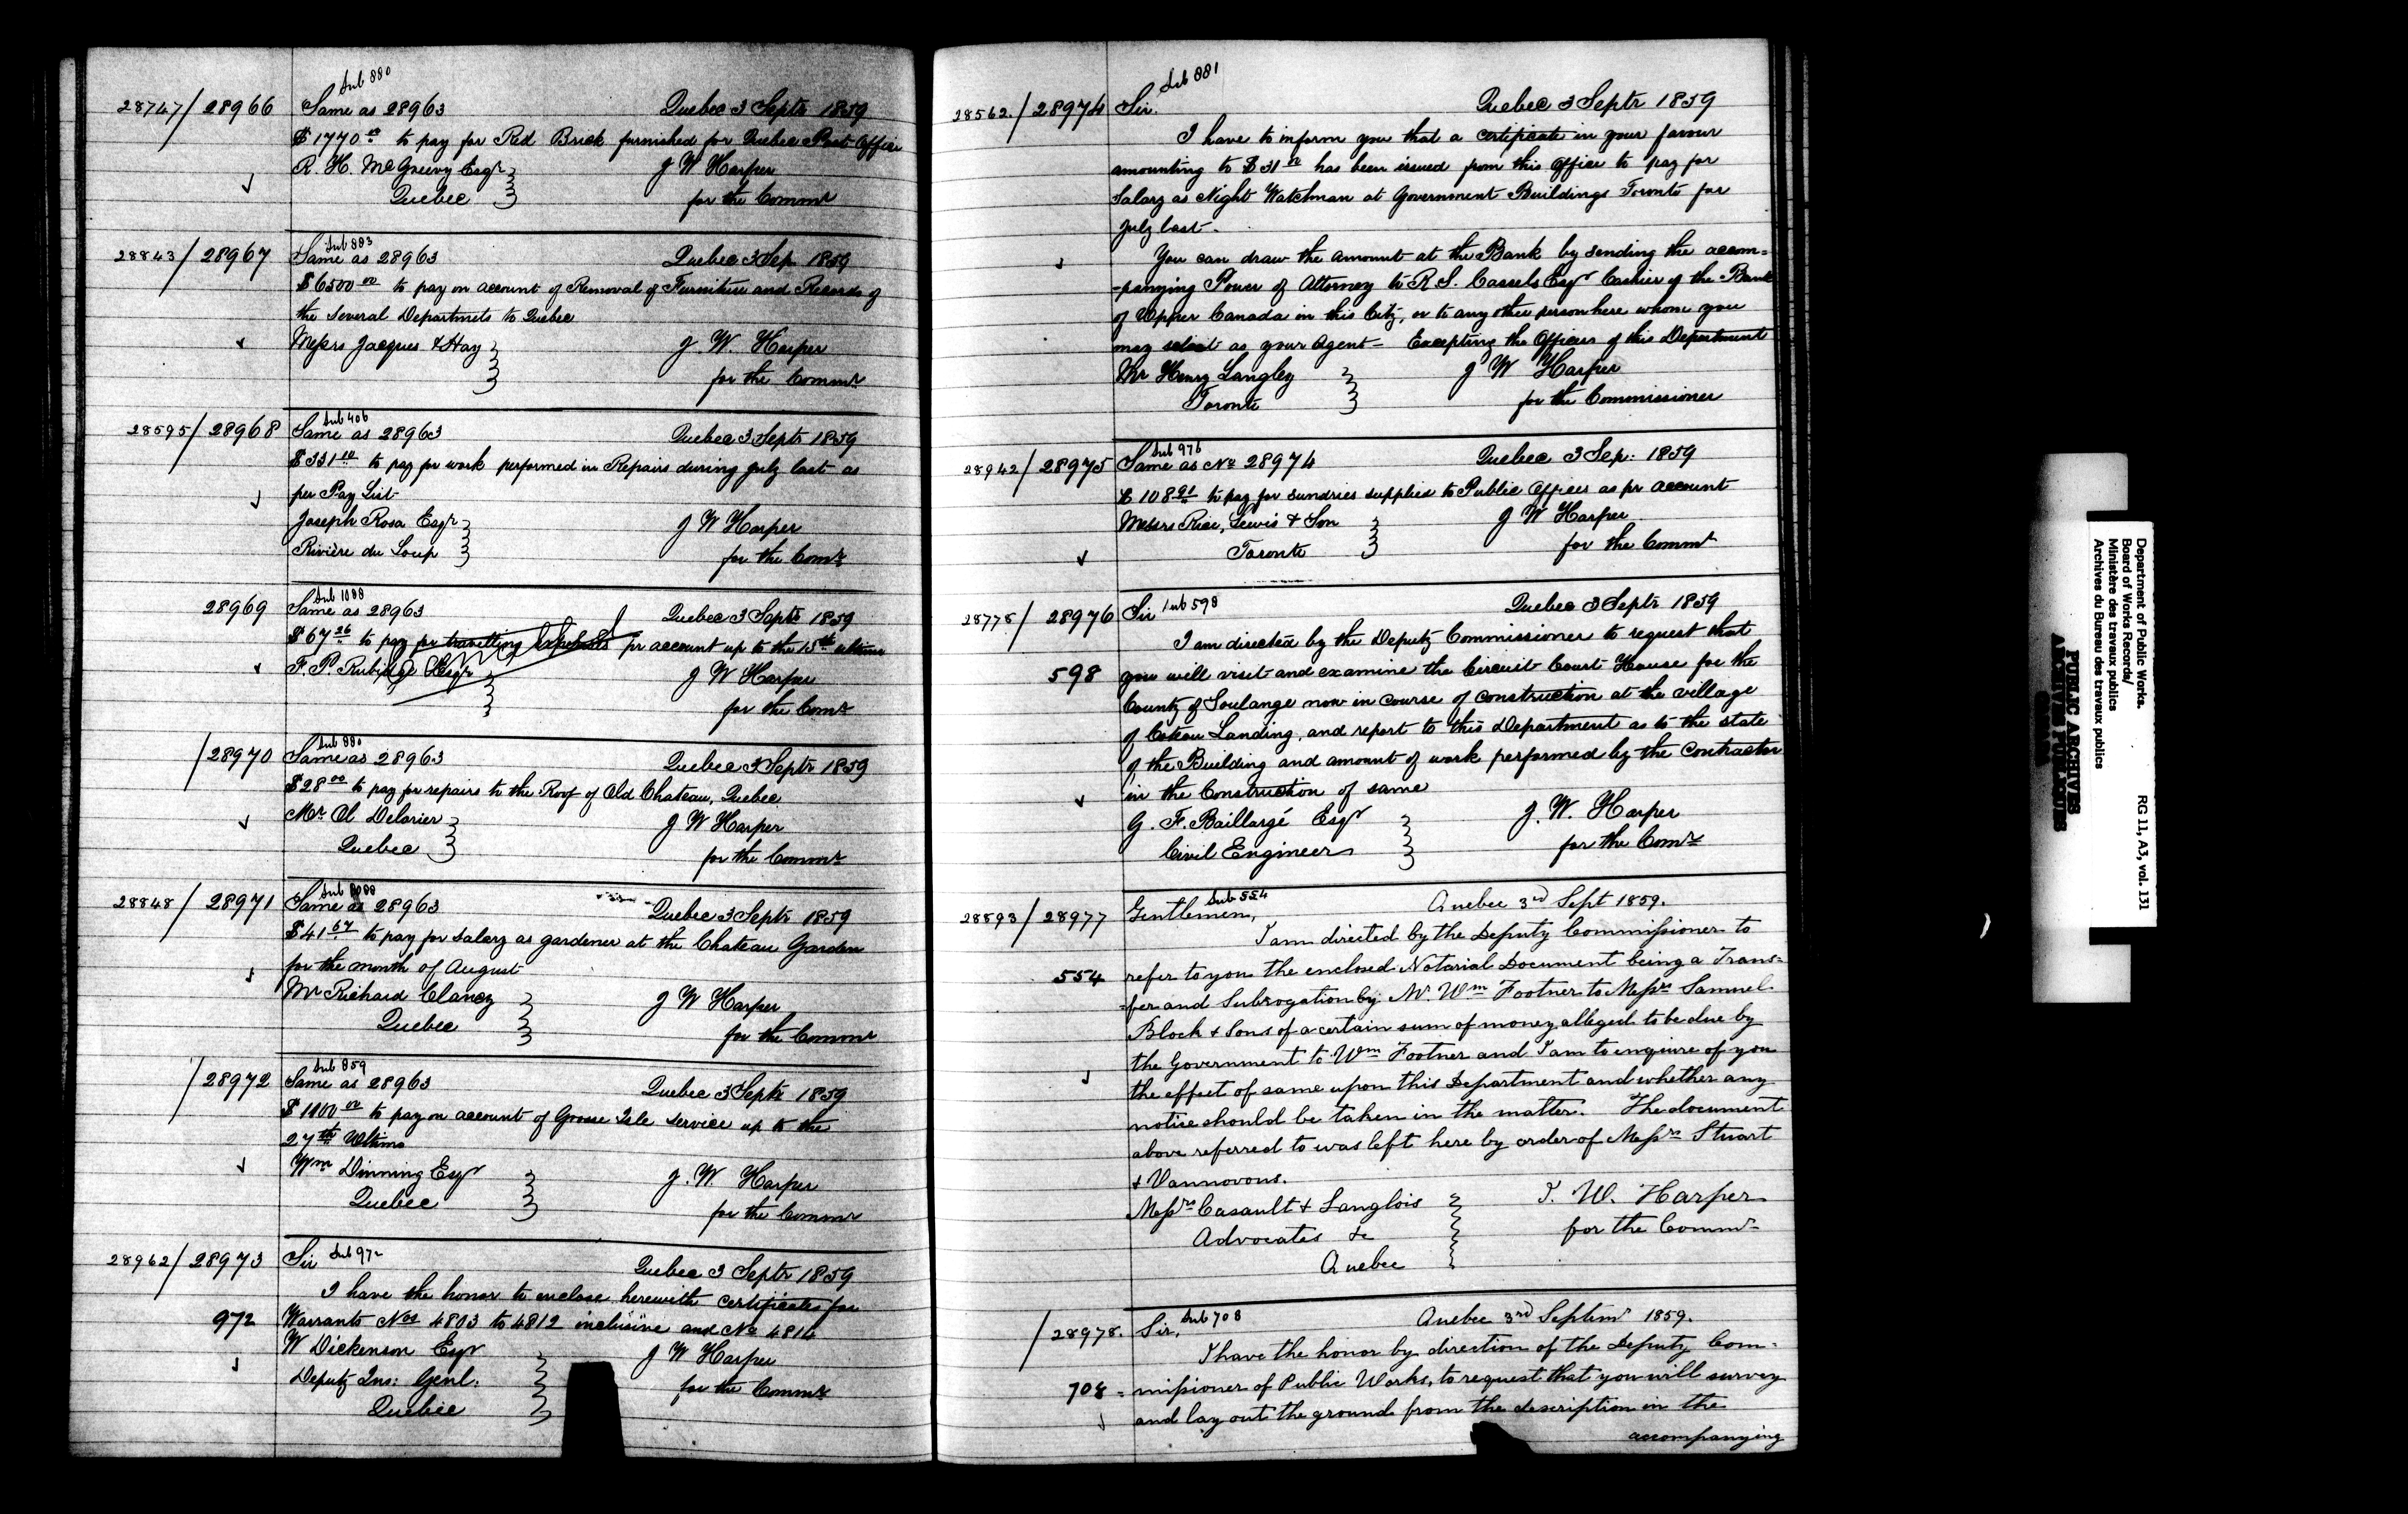 Sub 880
28747/28966 Same as 28963 Quebec 3 Septr 1859
$1770 00 to pay for Red Brick furnished for Quebec Post Office
R. H. McGreevy Esqr J W Harper
Quebec for the Commr
Sub 883
28843/28967 Same as 28963 Quebec 3 Sep 1859
$6500 00 to pay on account of Removal of Furniture and Records of
the several Departmets to Quebec
Messrs Jacques & Hay J. W. Harper
for the Commr
Sub 406
28595/28968 Same as 28963 Quebec 3 Septr 1859
$331 00 to pay for work performed in Repairs during July last as
per Pay List
Joseph Rosa Esqr J W Harper
Rivière du Loup for the Comr
Sub 1088
28969 Same as 28963 Quebec 3 Septr 1859
$67 26 to pay for travelling expenses pr account up to the 15th ultimo
F. P. Rubidge Esqr J W Harper
for the Comr
Sub 880
/28970 Same as 28963 Quebec 3 Septr 1859
$28 00 to pay for repairs to the Roof of Old Chateau, Quebec
Mr Delarier J W Harper
Quebec for the Commr
Sub
28848/28971 Same as 28963 Quebec 3 Septr 1859
$41 67 to pay for salary as gardener at the Chateau Garden
for the month of August
Mr Richard Clancy J W Harper
Quebec for the Commr
Sub 859
/28972 Same as 28963 Quebec 3 Septr 1859
$1100 00 to pay on account of Grosse Isle service up to the
27th Ultimo
Wm Dinning Esqr J. W. Harper
Quebec for the Commr
28962/28973 Sir Sub 972 Quebec 3 Septr 1859
I have the honor to enclose herewith certificates for
972 Warrants Nos 4803 to 4812 inclusive and No 4814
W Dickenson Esqr J W Harper
Deputy Ins: Genl: for the Commr
Quebec
Sub 881
28562/28974 Sir. Quebec 3 Septr 1859
I have to inform you that a certificate in your favour
amounting to $31 00 has been issued from this office to pay for
Salary as Night Watchman at Government Buildings Toronto for
July last.
You can draw the amount at the Bank by sending the accom=
-panying Power of Attorney to R S. Cassels Esqr Cashier of the Bank
of Upper Canada in this City, or to any other person here whom you
may select as your Agent - Excepting the Officers of this Department
Mr Henry Langley J W Harper
Toronto for the Commissioner
Sub 976
28942/28975 Same as No 28974 Quebec 3 Sep: 1859
$108 91 to pay for sundries supplied to Public Offices as pr account
Messrs Rice, Lewis & Son J W Harper
Toronto for the Commr
28778/28976 Sir Sub 598 Quebec 3 Septr 1859
I am directed by the Deputy Commissioner to request that
598 you will visit and examine the Circuit Court House for the
County of Soulange now in course of construction at the village
of Coteau Landing, and report to this Department as to the state
of the Building and amount of work performed by the contractor
in the Construction of same
G. F. Baillargé Esqr J. W. Harper
Civil Engineer for the Comr
Sub 554
28893/28977 Gentlemen, Quebec 3rd Sept 1859.
I am directed by the Deputy Commissioner to
554 refer to you the enclosed Notarial Document being a Trans=
=fer and Subrogation by Mr Wm Footner to Messrs Samuel
Block & Sons of a certain sum of money alleged to be due by
the Government to Wm Footner and I am to enquire of you
the effect of same upon this Department and whether any
notice should be taken in the matter. The document
above referred to was left here by order of Messrs Stuart
& Vannovous.
Messrs Casault & Langlois J. W. Harper
Advocates &c for the Commr
Quebec
/28978. Sir, Sub 708 Quebec 3rd Septemr 1859.
I have the honor by direction of the Deputy Com=
708 =missioner of Public Works, to request that you will survey
and lay out the ground from the description in the
accompanying
Department of Public Works.
Board of Works Records/
Ministère des travaux publics
Archives du Bureau des travaux publics
RG 11, A3, vol. 131
PUBLIC ARCHIVES
ARCHIVES PUBLIQUES